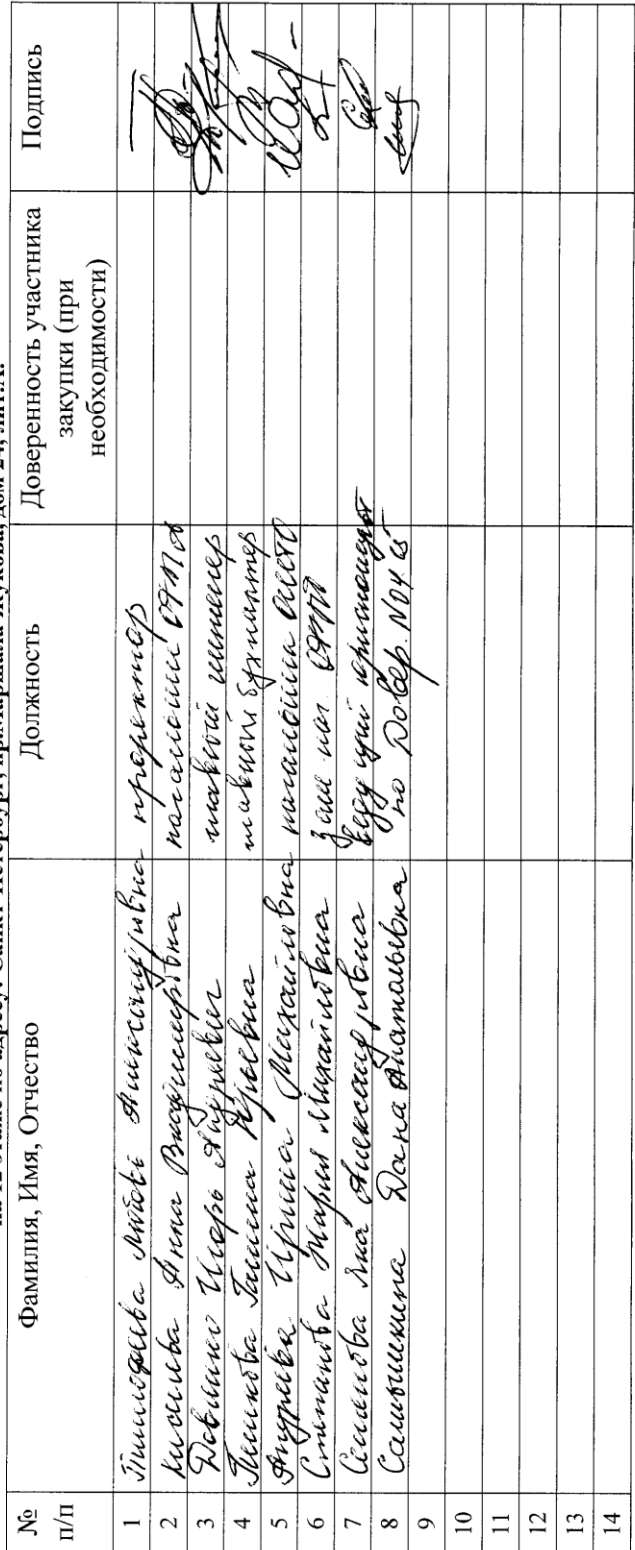 на 12 этаже по адресу: Санкт-Петербург, пр.Маршала Жукова, дом 24, лит.А.
№ п/п Фамилия, Имя, Отчество Должность Доверенность участника закупки (при необходимости) Подпись
1 Тимофеева Любовь Александровна проректор
2 Киселева Анна Владимировна начальник
3 Игорь Андреевич главный инженер
4 Галина Юрьевна главный бухгалтер
5 Андреева Ирина Михайловна начальник
6 Степанова Мария Михайловна зам нач.
7 Семенова Яна Александровна ведущий юрисконсульт
8 Дана Анатольевна по Довер. №
9
10
11
12
13
14